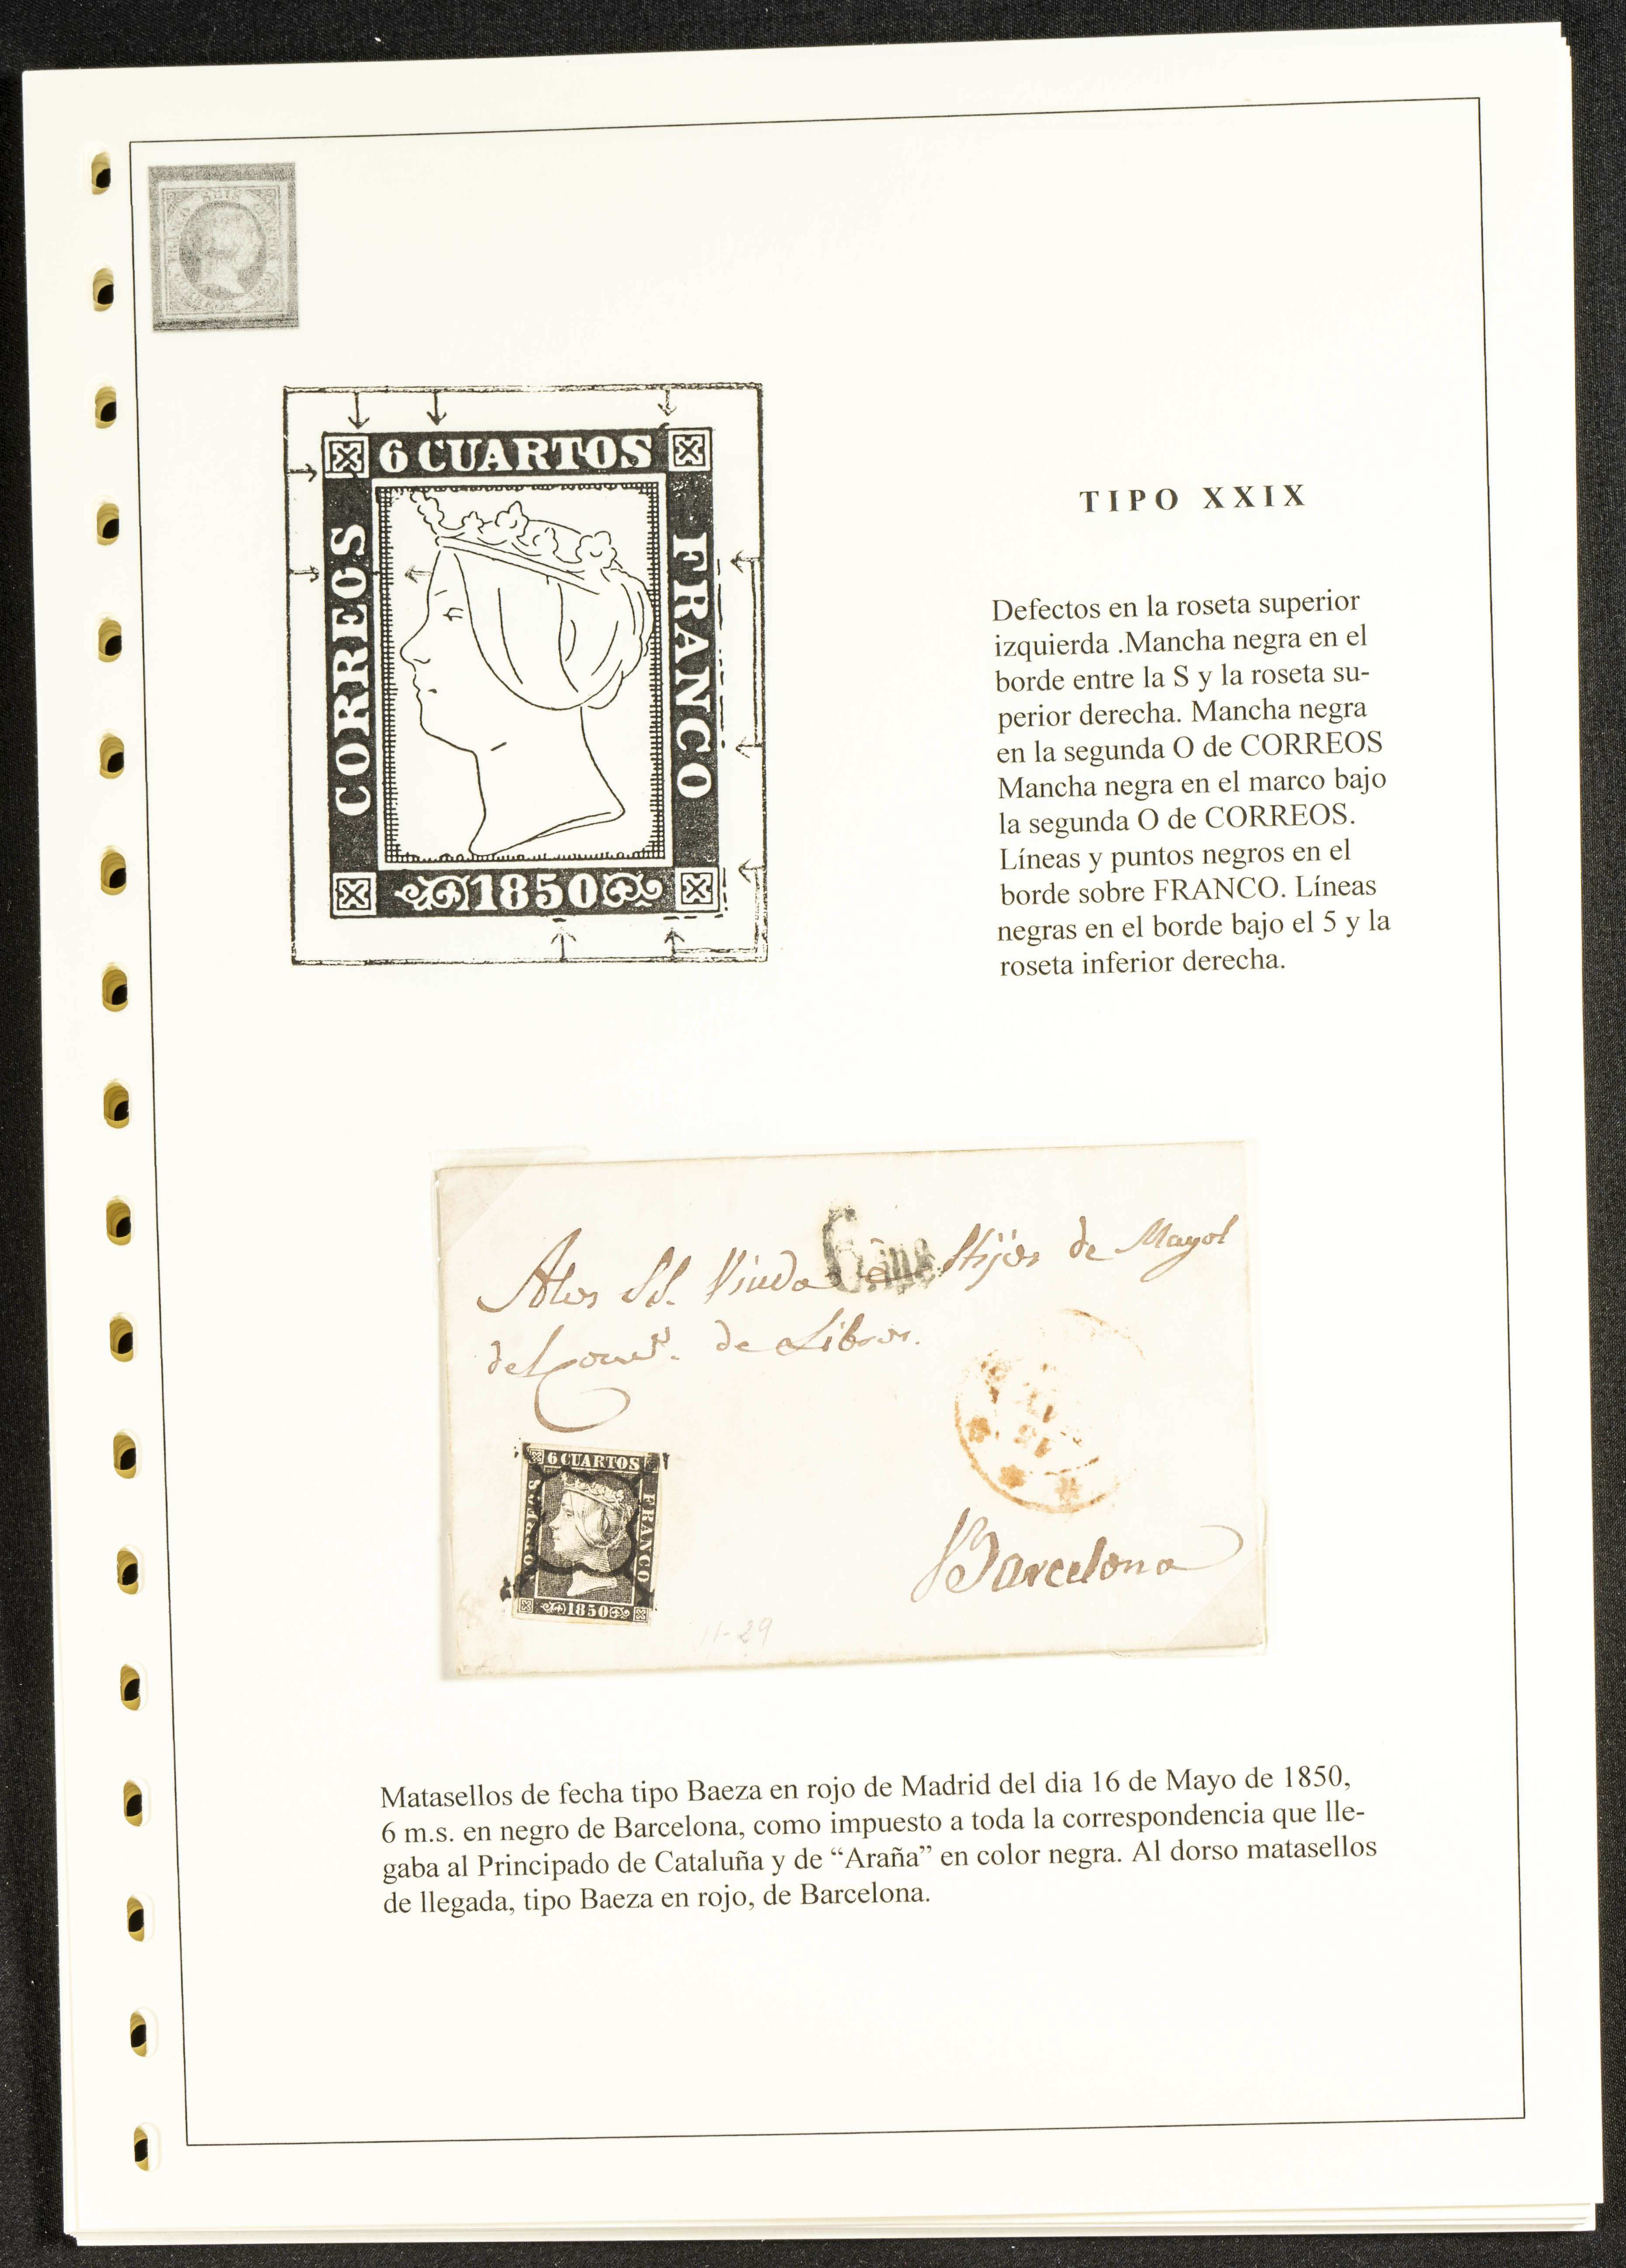 6 CUARTOS
CORREOS
FRANCO
1850
TIPO XXIX
Defectos en la roseta superior
izquierda .Mancha negra en el
borde entre la S y la roseta su-
perior derecha. Mancha negra
en la segunda O de CORREOS
Mancha negra en el marco bajo
la segunda O de CORREOS.
Líneas y puntos negros en el
borde sobre FRANCO. Líneas
negras en el borde bajo el 5 y la
roseta inferior derecha.
Alos SS. Viuda é Hijos de Mayol
del de Libros.
6 CUARTOS
CORREOS
FRANCO
1850
Barcelona
11-29
Matasellos de fecha tipo Baeza en rojo de Madrid del dia 16 de Mayo de 1850,
6 m.s. en negro de Barcelona, como impuesto a toda la correspondencia que lle-
gaba al Principado de Cataluña y de “Araña” en color negra. Al dorso matasellos
de llegada, tipo Baeza en rojo, de Barcelona.